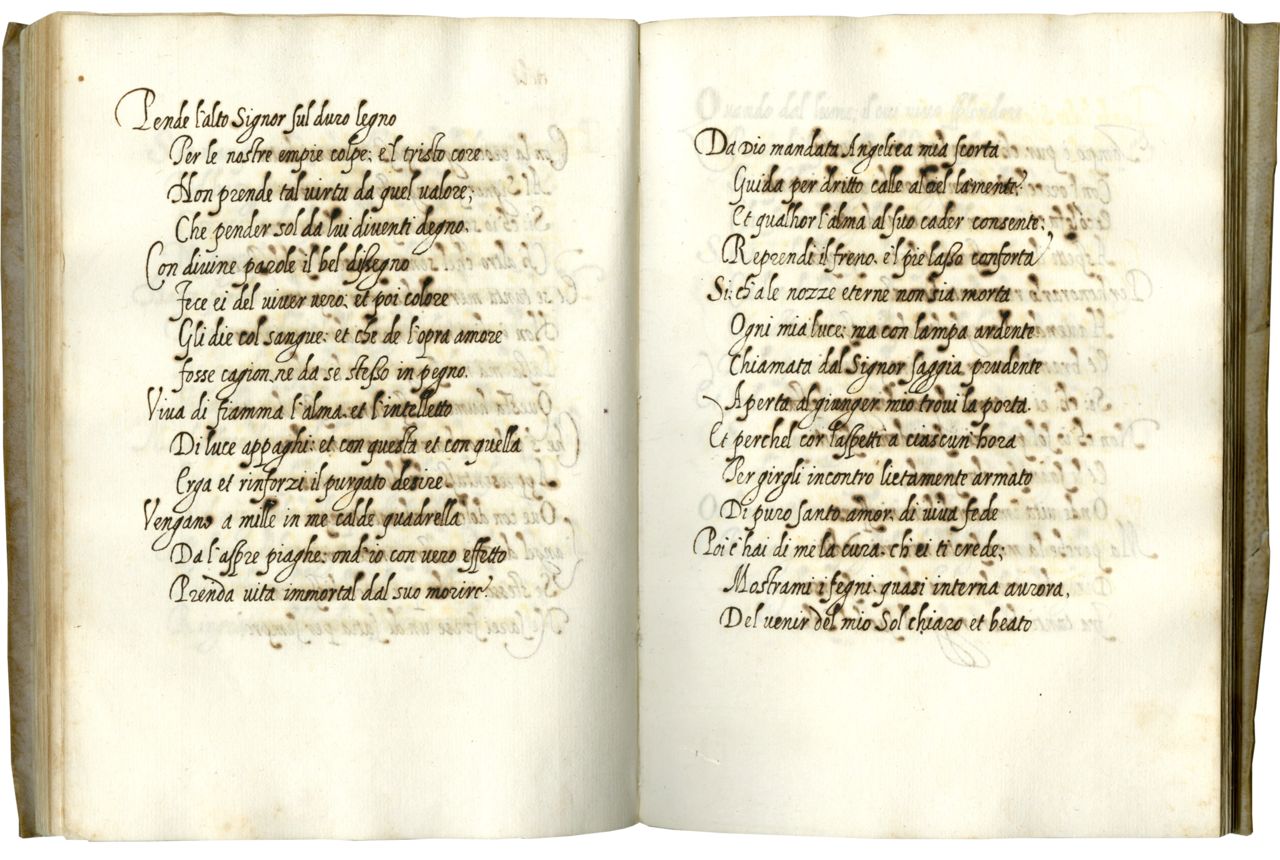 Pende l'alto Signor sul duro legno
Per le nostre empie colpe; e'l tristo core
Non prende tal virtu da quel valore;
Che pender sol da lui diventi degno.
Con divine parole il bel dissegno
Fece ei del viver vero; et poi colore
Gli die col sangue: et che de l'opra amore
Fosse cagion, ne da se stesso in pegno.
Viva di fiamma l'alma, et l'intelletto
Di luce appaghi: et con questa et con quella
Erga et rinforzi il purgato desire
Vengano a mille in me calde quadrella
Da l'aspre piaghe; ond'io con vero effetto
Prenda vita immortal dal suo morire.
Da Dio mandata Angelica mia scorta
Guida per dritto calle al ciel la mente;
Et qualhor l'alma al suo cader consente;
Reprendi il freno, e'l pie lasso conforta
Si; ch'a le nozze eterne non sia morta
Ogni mia luce; ma con lampa ardente
Chiamata dal Signor saggia, prudente
Aperta al giunger mio trovi la porta.
Et perchel cor l'aspetti a ciascun'hora
Per girgli incontro lietamente armato
Di puro santo amor, di viva fede
Poi c'hai di me la cura, ch'ei ti crede;
Mostrami i segni, quasi interna aurora,
Del venir del mio Sol chiaro et beato